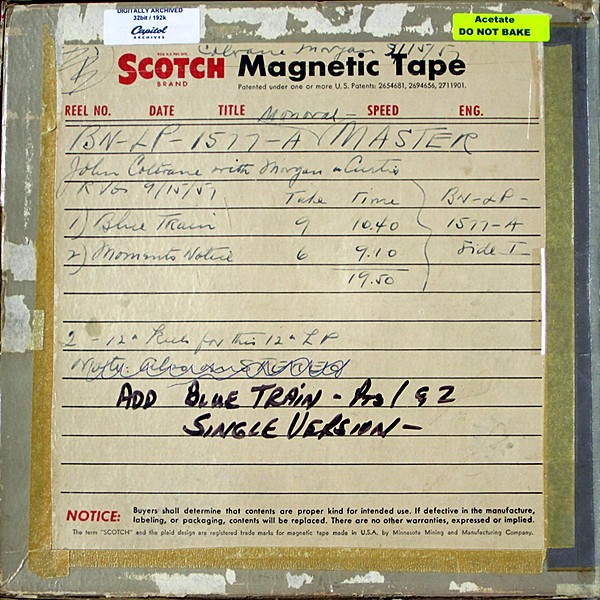 DIGITALLY ARCHIVED
32bit / 192k
Capitol
ARCHIVES
Acetate
DO NOT BAKE
Coltrane Morgan 9/15/57
SCOTCH Magnetic Tape
BRAND
Patented under one or more U.S. Patents: 2654681, 2694656, 2711901.
Monoral -
REEL NO. DATE TITLE SPEED ENG.
BN-LP-1577-A MASTER
John Coltrane with Morgan Curtis
RVG 9/15/57
Take Time BN-LP-
1) Blue Train 9 10.40 1577-A
2) Moments Notice 6 9.10 Side I
19.50
2 - 12" Reels for this 12" LP
ADD BLUE TRAIN - Pts 1 & 2
SINGLE VERSION -
NOTICE: Buyers shall determine that contents are proper kind for intended use. If defective in the manufacture,
labeling, or packaging, contents will be replaced. There are no other warranties, expressed or implied.
The term "SCOTCH" and the plaid design are registered trade marks for magnetic tape made in U.S.A. by Minnesota Mining and Manufacturing Company.